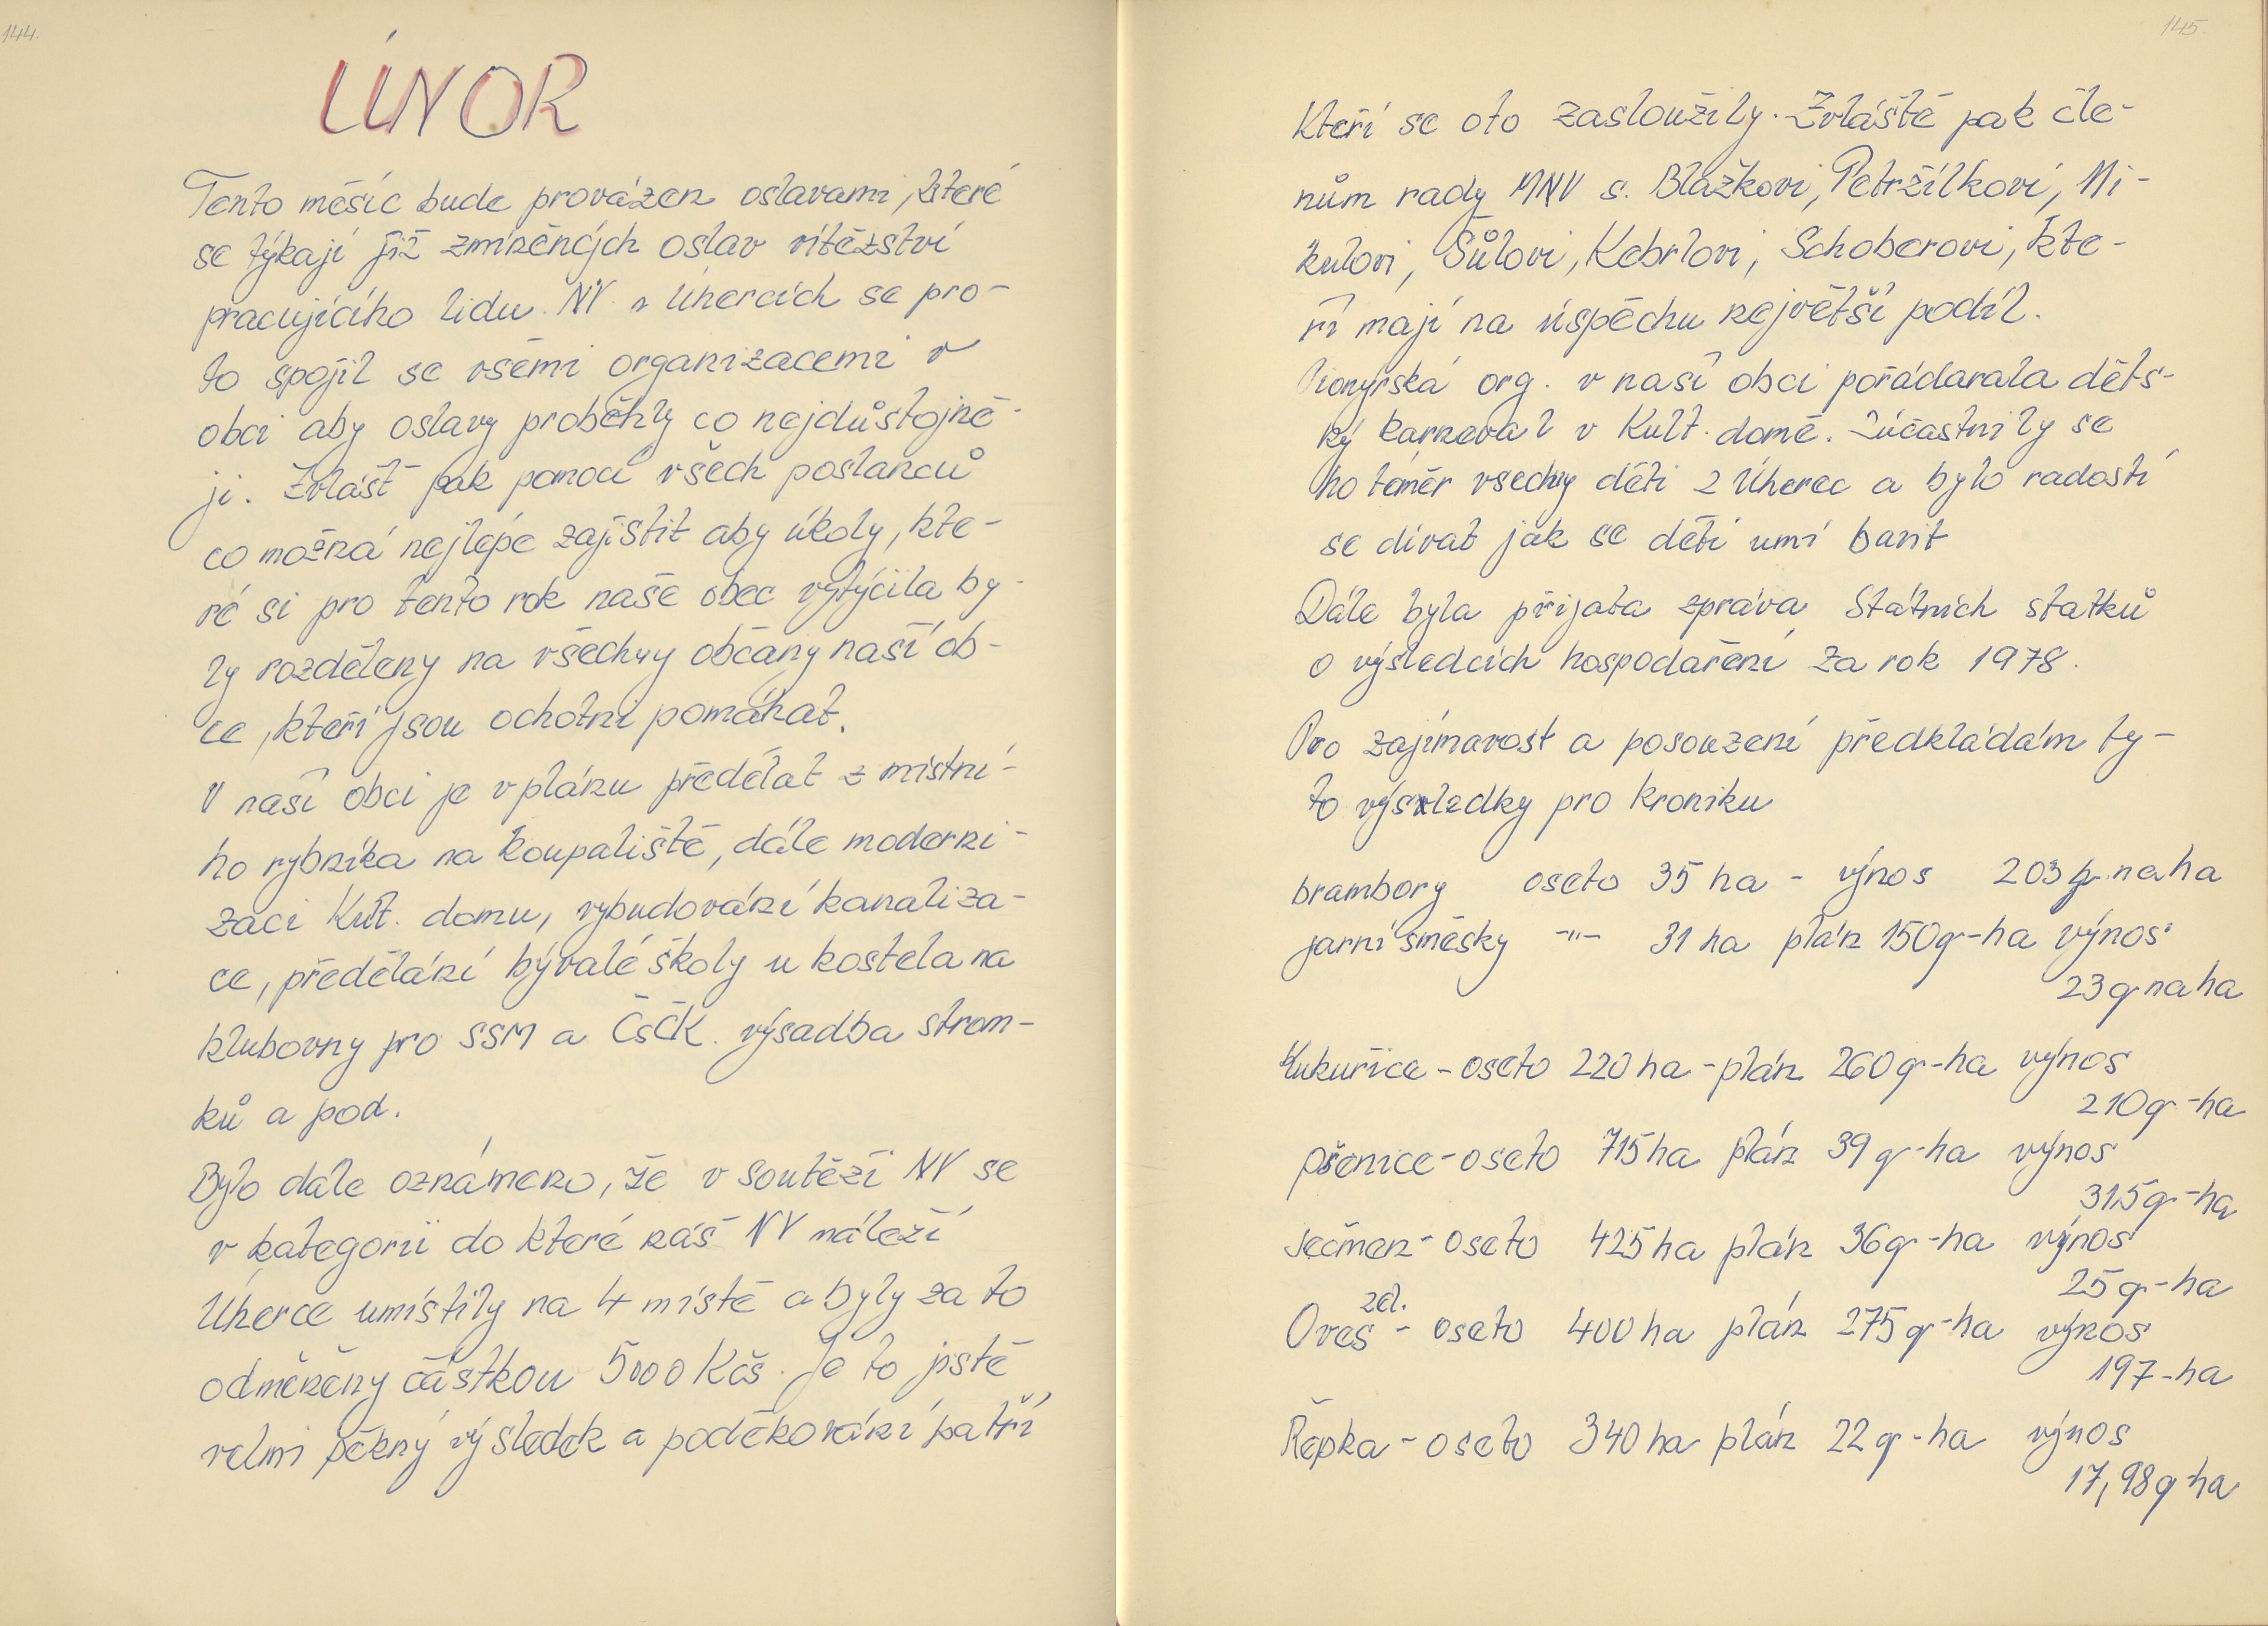 144.
ÚNOR
Tento měsíc bude provázen oslavami, které
se týkají již zmíněných oslav vítězství
pracujícího lidu. NV v Úhercích se pro-
to spojil se všemi organizacemi v
obci aby oslavy proběhly co nejdůstojně-
ji. Zvlášť pak pomocí všech poslanců
co možná nejlépe zajistit aby úkoly, kte-
ré si pro tento rok naše obec vytýčila by-
ly rozděleny na všechny občany naší ob-
ce, kteří jsou ochotni pomáhat.
V naší obci je v plánu předělat z místní-
ho rybníka na koupaliště, dále moderni-
zaci Kult. domu, vybudování kanaliza-
ce, předělání bývalé školy u kostela na
klubovny pro SSM a ČsČK. výsadba strom-
ků a pod.
Bylo dále oznámeno, že v soutěži NV se
v kategorii do které náš NV náleží
Úherce umístily na 4 místě a byly za to
odměněny částkou 5000 Kčs. Je to jistě
velmi pěkný výsledek a poděkování patří
145.
kteří se oto zasloužily. Zvláště pak čle-
nům rady MNV s. Blažkovi, Petržílkovi, Mi-
kulovi, Šůlovi, Kebrlovi, Schoberovi, kte-
ří mají na úspěchu největší podíl.
Pionýrská org. v naší obci pořádarala děts-
ký karneval v Kult. domě. Zúčastnily se
ho téměř všechny děti z Úherec a bylo radostí
se dívat jak se děti umí bavit
Dále byla přijata zpráva Státních statků
o výsledcích hospodaření za rok 1978.
Pro zajímavost a posouzení předkládám ty-
to výsledky pro kroniku
brambory oseto 35 ha - výnos 203 q na ha
jarní směsky -"- 31 ha plán 150q-ha výnos
23 q na ha
Kukuřice - oseto 220 ha - plán 260q-ha výnos
210q-ha
pšenice - oseto 715 ha plán 39 q-ha výnos
31,5q-ha
Ječmen - oseto 425 ha plán 36q-ha výnos
25q-ha
Oves zel. - oseto 400 ha plán 275q-ha výnos
197-ha
Řepka - oseto 340 ha plán 22q-ha výnos
17,98q ha